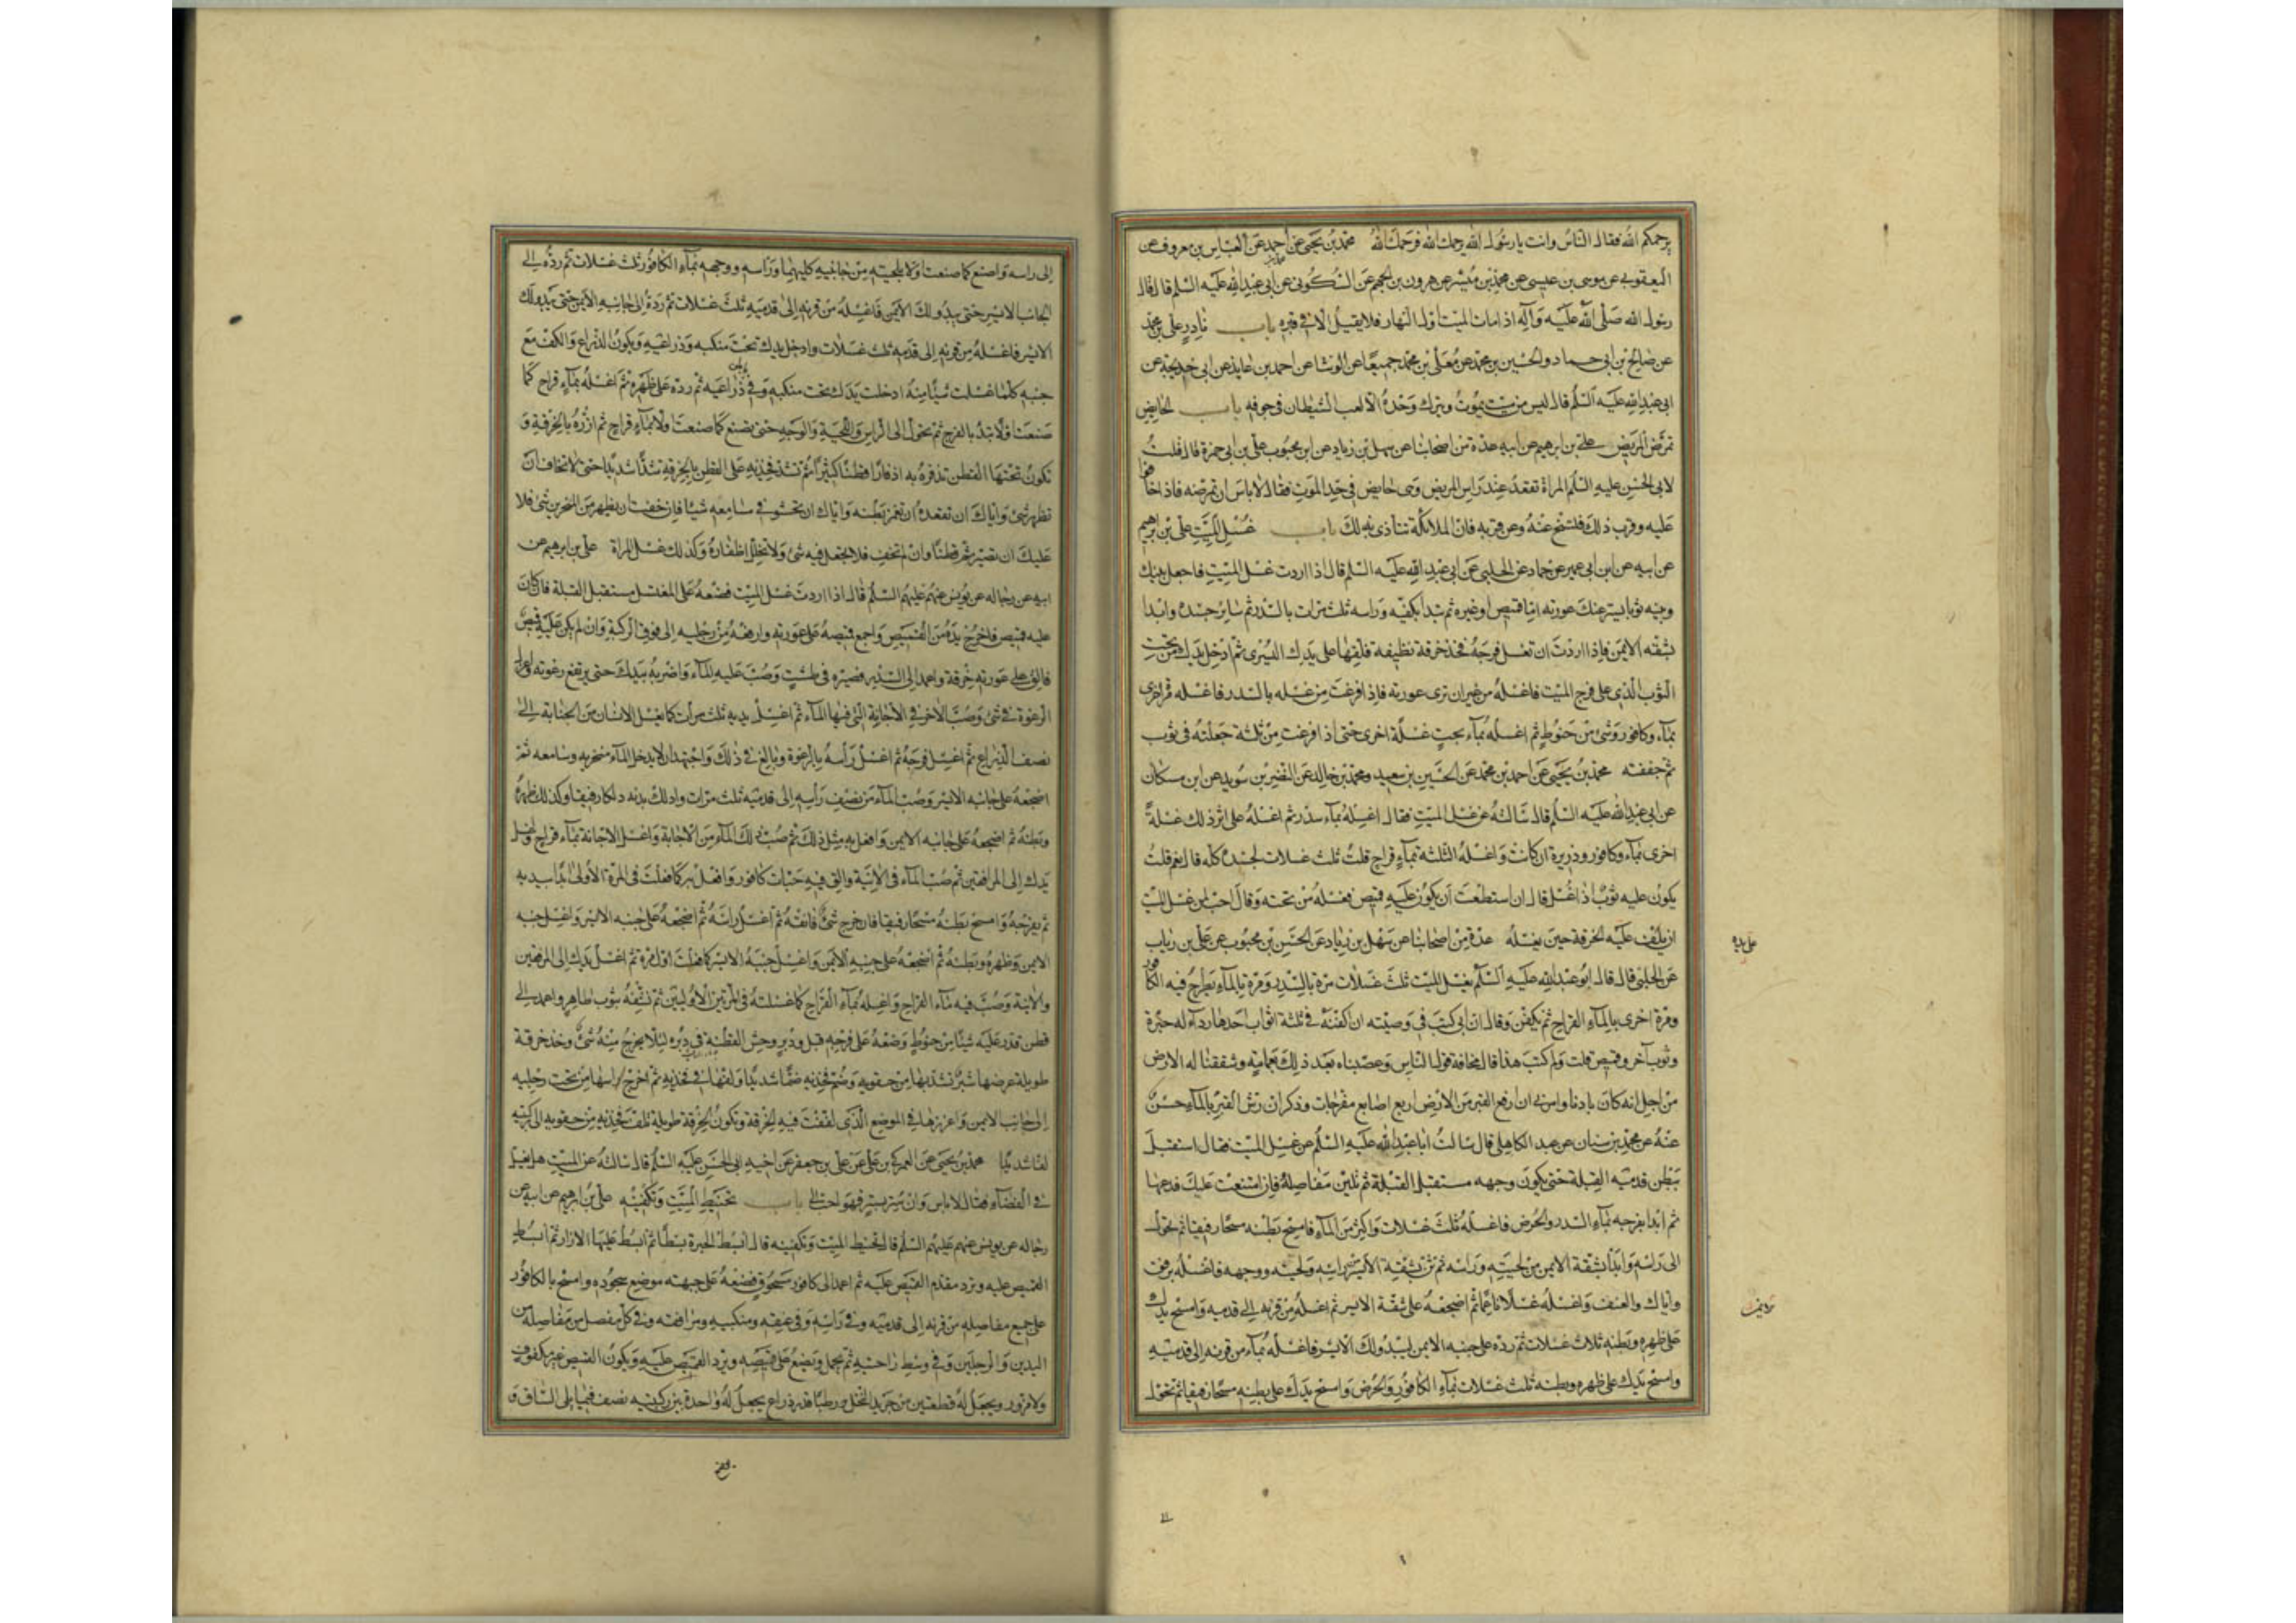 يرحمكم الله فقال الناس وانت يا رسول الله يرحمك الله فرحمك الله محمد بن يحيى عن احمد عن العباس بن معروف عن
اليعقوبي عن موسى بن عيسى عن محمد بن ميسر عن هرون بن الجهم عن السكوني عن ابي عبد الله عليه السلم قال قال
رسول الله صلى الله عليه وآله اذا مات الميت اول النهار فلا يقيل الا في قبره باب نادر علي بن محمد
عن صالح بن ابي حماد والحسين بن محمد عن معلى بن محمد جميعا عن الوشا عن احمد بن عايذ عن ابي خديجة عن
ابي عبد الله عليه السلم قال ليس من ميت يموت ويترك وحده الا لعب الشيطان في جوفه باب الحايض
تمرض المريض علي بن ابرهيم عن ابيه عدة من اصحابنا عن سهل بن زياد عن ابن محبوب علي بن ابي حمزة قال قلت
لابي الحسن عليه السلم المراة تقعد عند راس المريض وهي حايض في حد الموت فقال لا باس ان تمرضه فاذا خافوا
عليه وقرب ذلك فلتنح عنه وعن قربه فان الملائكة تتأذى بذلك باب غسل الميت علي بن ابرهيم
عن ابيه عن ابن ابي عمير عن حماد عن الحلبي عن ابي عبد الله عليه السلم قال اذا اردت غسل الميت فاجعل بينك
وبينه ثوبا يستر عنك عورته اما قميص او غيره ثم تبدا بكفيه وراسه ثلث مرات بالسدر ثم ساير جسده وابدا
بشقه الايمن فاذا اردت ان تغسل فرجه فخذ خرقة نظيفه فلفها على يدك اليسرى ثم ادخل يدك من تحت
الثوب الذي على فرج الميت فاغسله من غير ان ترى عورته فاذا فرغت من غسله بالسدر فاغسله مرة اخرى
بمآء وكافور وشئ من حنوط ثم اغسله بمآء بحت غسلة اخرى حتى اذا فرغت من ثلثة جعلته في ثوب
ثم جففته محمد بن يحيى عن احمد بن محمد عن الحسين بن سعيد ومحمد بن خالد عن النضر بن سويد عن ابن مسكان
عن ابي عبد الله عليه السلم قال سالته عن غسل الميت فقال اغسله بمآء سدر ثم اغسله على اثر ذلك غسلة
اخرى بمآء وكافور وذريرة ان كانت واغسله الثلثة بمآء قراح قلت ثلث غسلات لجسده كله قال نعم قلت
يكون عليه ثوب اذا غسل قال ان استطعت ان يكون عليه قميص فغسله من تحته وقال احب لمن غسل الميت
ان يلف عليه الخرقة حين يغسله عدة من اصحابنا عن سهل بن زياد عن الحسن بن محبوب عن علي بن رياب
على يده
عن الحلبي قال قال ابو عبد الله عليه السلم يغسل الميت ثلث غسلات مرة بالسدر ومرة بالمآء يطرح فيه الكافور
ومرة اخرى بالمآء القراح ثم يكفن وقال ان ابي كتب في وصيته ان اكفنه في ثلثة اثواب احدها ردآء له حبرة
وثوب آخر وقميص قلت ولم كتب هذا قال مخافة قول الناس وعصبناه بعد ذلك بعمامة وشققنا له الارض
من اجل انه كان بادنا وامرني ان ارفع القبر من الارض اربع اصابع مفرجات وذكر ان رش القبر بالمآء حسن
عنه عن محمد بن سنان عن عبد الكاهلي قال سالت ابا عبد الله عليه السلم عن غسل الميت فقال استقبل
بطن قدميه القبلة حتى يكون وجهه مستقبل القبلة ثم تلين مفاصله فان امتنعت عليك فدعها
ثم ابدا بفرجه بمآء السدر والحرض فاغسله ثلث غسلات واكثر من المآء فامسح بطنه مسحا رفيقا ثم تحول
الى راسه وابدا بشقة الايمن من لحيته وراسه ثم ثن بشقه الايسر من راسه ولحيته ووجهه فاغسله برفق
واياك والعنف واغسله غسلا ناعما ثم اضجعه على شقة الايسر ثم اغسله من قرنه الى قدميه وامسح يدك
على ظهره وبطنه ثلاث غسلات ثم رده على جنبه الايمن ليبدو لك الايسر فاغسله بمآء من قرنه الى قدميه
وامسح يدك على ظهره وبطنه ثلث غسلات بمآء الكافور والحرض وامسح يدك على بطنه مسحا رفيقا ثم تحول
الى راسه واصنع كما صنعت اولا بلحيته من جانبيه كليهما وراسه ووجهه بمآء الكافور ثلث غسلات ثم رده الى
الجانب الايسر حتى يبدو لك الايمن فاغسله من قرنه الى قدميه ثلث غسلات ثم رده الى جانبه الايمن حتى يبدو لك
الايسر فاغسله من قرنه الى قدميه ثلث غسلات وادخل يدك تحت منكبه وذراعيه ويكون الذراع والكف مع
جنبه كلما غسلت شيئا منه ادخلت يدك تحت منكبه وفي ذراعيه ثم رده على ظهره ثم اغسله بمآء قراح كما
صنعت اولا تبدا بالفرج ثم تحول الى الراس واللحية والوجه حتى تصنع كما صنعت اولا بمآء قراح ثم ازره بالخرقة و
تكون تحتها القطن تذفره به اذفارا قطنا كثيرا ثم تشد فخذيه على القطن بالخرقة شدا شديدا حتى لا تخاف ان
تظهر شئ واياك ان تقعده او تغمز بطنه واياك ان تحشو في مسامعه شيئا فان خفت ان يظهر من المنخرين شئ فلا
عليك ان تصير ثم قطنا وان لم تخف فلا تجعل فيه شئ ولا تخلل اظفاره وكذلك غسل المراة علي بن ابرهيم عن
ابيه عن رجاله عن يونس عنهم عليهم السلم قال اذا اردت غسل الميت فضعه على المغتسل مستقبل القبلة فان كان
عليه قميص فاخرج يده من القميص واجمع قميصه على عورته وارفعه من رجليه الى فوق الركبة وان لم يكن عليه قميص
فالق على عورته خرقة واعمد الى السدر فصيره في طشت وصب عليه المآء واضربه بيدك حتى يرتفع رغوته واعزل
الرغوة في شئ وصب الاخر في الاجانة التي فيها المآء ثم اغسل يديه ثلث مرات كما يغسل الانسان من الجنابة الى
نصف الذراع ثم اغسل فرجه ثم اغسل رأسه بالرغوة وبالغ في ذلك واجتهد ان لا يدخل المآء منخريه ومسامعه ثم
اضجعه على جانبه الايسر وصب المآء من نصف رأسه الى قدميه ثلث مرات وادلك بدنه دلكا رفيقا وكذلك ظهره
وبطنه ثم اضجعه على جانبه الايمن وافعل به مثل ذلك ثم صب ذلك المآء من الاجانة واغسل الاجانة بمآء قراح واغسل
يدك الى المرافقين ثم صب المآء في الآنية والق فيه حبات كافور وافعل به كما فعلت في المرة الاولى ابدا بيديه
ثم بفرجه وامسح بطنه مسحا رفيقا فان خرج شئ فانقه ثم اغسل راسه ثم اضجعه على جنبه الايسر واغسل جنبه
الايمن وظهره وبطنه ثم اضجعه على جنبه الايمن واغسل جنبه الايسر كما فعلت اول مرة ثم اغسل يديك الى المرفقين
والآنية وصب فيه مآء القراح واغسله بمآء القراح كما غسلته في المرتين الاوليين ثم نشفه بثوب طاهر واعمد الى
قطن فذر عليه شيئا من حنوط وضعه على فرجه قبل ودبر وحش القطن في دبره لئلا يخرج منه شئ وخذ خرقة
طويلة عرضها شبر فشدها من حقويه وضم فخذيه ضما شديدا ولفها في فخذيه ثم اخرج راسها من تحت رجليه
الى جانب الايمن واغرزها في الموضع الذي لففت فيه الخرقة وتكون الخرقة طويلة تلف فخذيه من حقويه الى ركبتيه
لفا شديدا محمد بن يحيى عن العمركي بن علي عن علي بن جعفر عن اخيه ابي الحسن عليه السلم قال سالته عن الميت هل يغسل
في الفضآء فقال لا باس وان ستر بستر فهو احب الي باب تحنيط الميت وتكفينه علي بن ابرهيم عن ابيه عن
رجاله عن يونس عنهم عليهم السلم قال في تحنيط الميت وتكفينه قال ابسط الحبرة بسطا ثم ابسط عليها الازار ثم ابسط
القميص عليه وترد مقدم القميص عليه ثم اعمد الى كافور مسحوق فضعه على جبهته موضع سجوده وامسح بالكافور
على جميع مفاصله من قرنه الى قدميه وفي راسه وفي عنقه ومنكبيه ومرافقه وفي كل مفصل من مفاصله من
اليدين والرجلين وفي وسط راحتيه ثم يحمل ويوضع على قميصه ويرد القميص عليه ويكون القميص غير مكفوف
ولا مزرور ويجعل له قطعتين من جريد النخل رطبا قدر ذراع يجعل له واحدة بين ركبتيه نصف فيما يلي الساق و